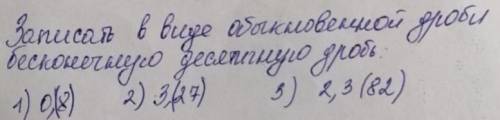 Записать в виде обыкновенной дроби
бесконечную десятичную дробь:
1) 0,(8) 2) 3,(27) 3) 2,3(82)